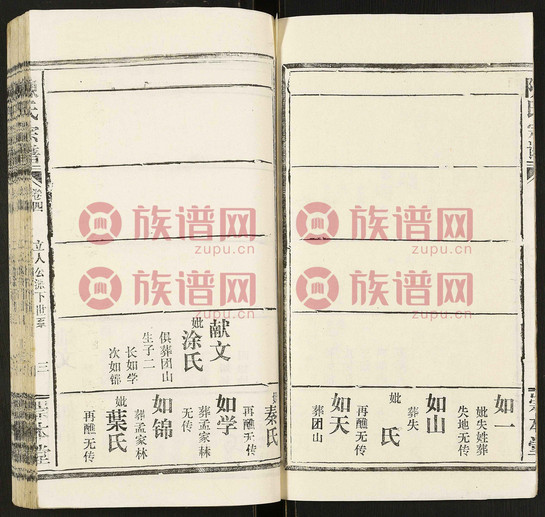 陳氏宗譜
如一
妣失姓葬
失地无传
如山
葬失
妣 氏
再醮无传
如天
葬团山
崇本堂
献文
妣涂氏
俱葬团山
生子二
长如学
次如锦
妣秦氏
再醮无传
如学
葬孟家林
无传
如锦
葬孟家林
妣葉氏
再醮无传
陳氏宗譜
卷四
立人公派下世系
三
崇本堂
族谱网
zupu.cn
族谱网
zupu.cn
族谱网
zupu.cn
族谱网
zupu.cn